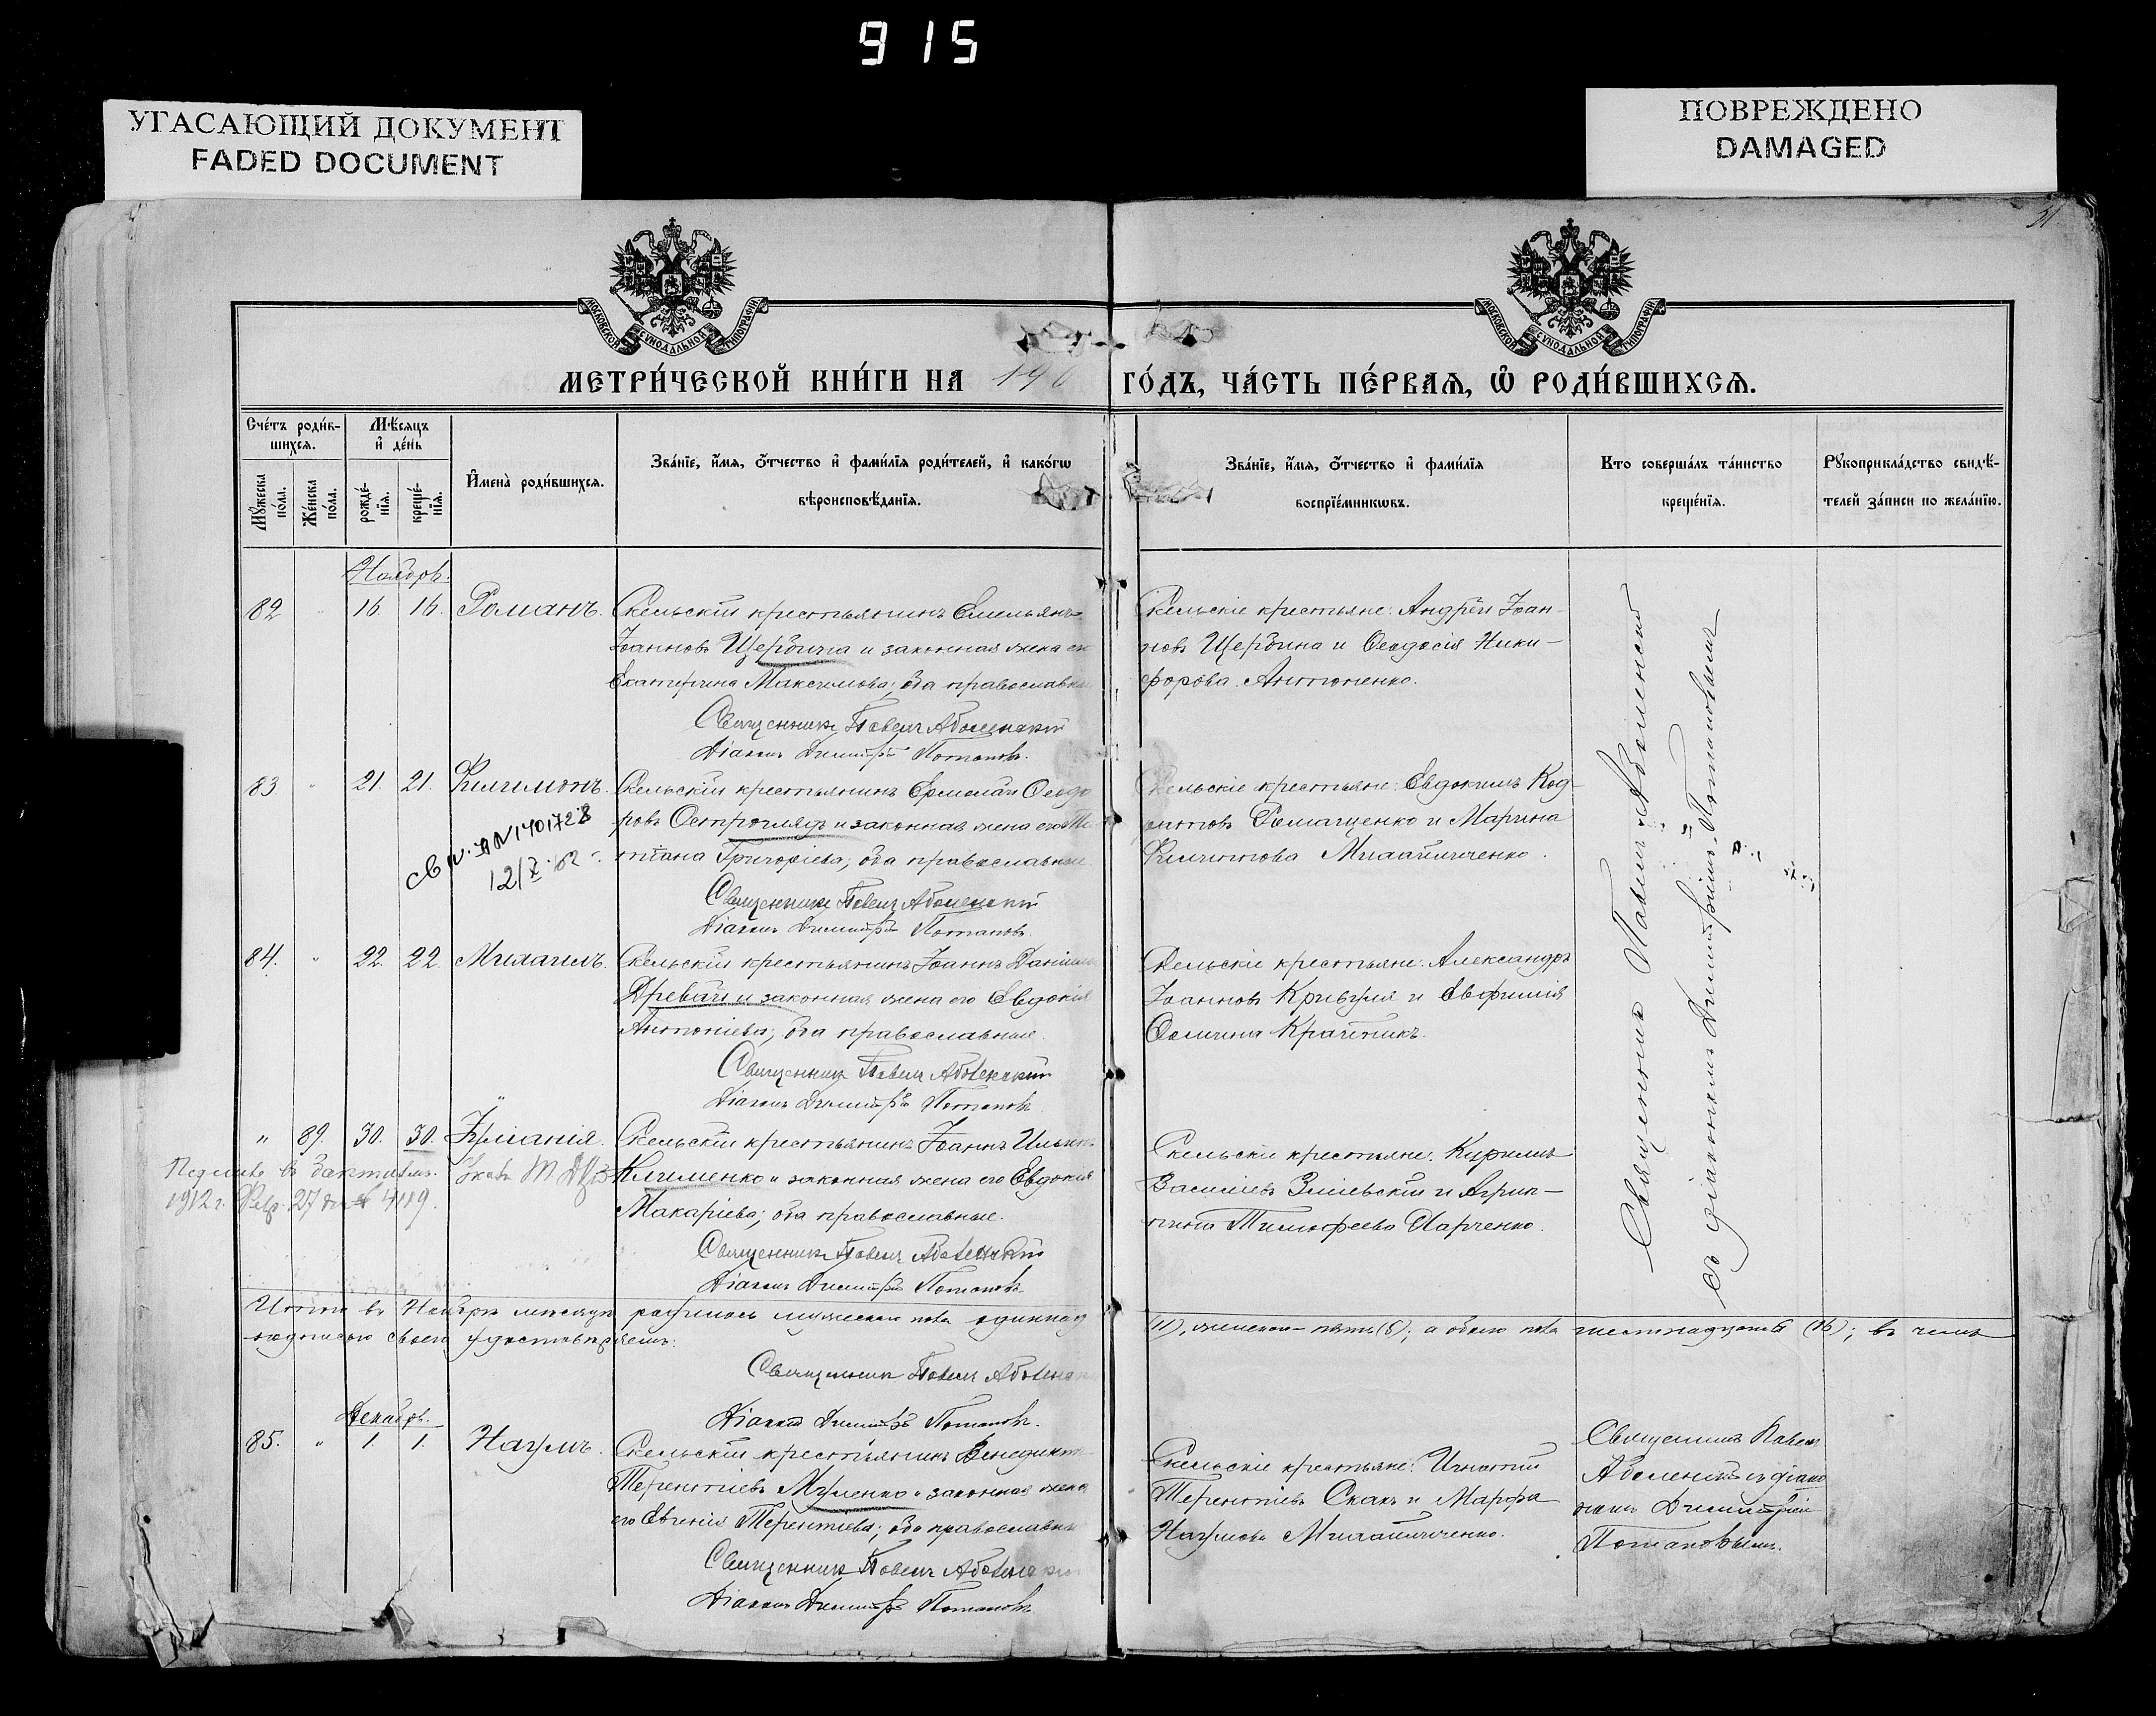 915
УГАСАЮЩИЙ ДОКУМЕНТ
FADED DOCUMENT
ПОВРЕЖДЕНО
DAMAGED
31
МОСКОВСКОЙ СѴНОДАЛЬНОЙ ТИПОГРАФІИ
МОСКОВСКОЙ СѴНОДАЛЬНОЙ ТИПОГРАФІИ
МЕТРИ́ЧЕСКОЙ КНИ́ГИ НА 190
ГО́ДЪ, ЧА́СТЬ ПЕ́РВАЯ, Ѡ РОДИ́ВШИХСЯ.
Сче́тъ роди́в-
шихся.
Мѣ́сяцъ
и де́нь
Мꙋ́жеска
по́ла.
Же́нска
по́ла.
рожде́-
нїя.
креще́-
нїя.
Имена̀ роди́вшихся.
Зва́нїе, и́мя, о́тчество и фами́лїя роди́телей, и како́гѡ
вѣроисповѣ́данїя.
Зва́нїе, и́мя, о́тчество и фами́лїя
воспрїе́мникѡвъ.
Кто соверша́лъ та́инство
креще́нїя.
Рꙋкоприкла́дство свидѣ́-
телей за́писи по жела́нїю.
Ноябрь.
82 16. 16. Романъ. Скельскій крестьянинъ Емельянъ
Іоанновъ Щербина и законная жена его
Екатерина Максимова; оба православные
Священникъ Павелъ Аболенскій
Діаконъ Димитрій Потаповъ.
Скельскіе крестьяне: Андрей Іоан-
новъ Щербина и Ѳеодосія Ники-
форова Антоненко.
83 " 21. 21. Филимонъ. Скельскій крестьянинъ Ермолай Ѳеодо
ровъ Остроглядъ и законная жена его Та
тіана Григоріева; оба православные
Священникъ Павелъ Аболенскій
Діаконъ Димитрій Потаповъ.
св. N. ЯN 1401728
12/X 62 г.
Скельскіе крестьяне: Евдокимъ Код-
ратовъ Ромащенко и Марина
Филиппова Михайличенко.
84. " 22. 22 Михаилъ. Скельскій крестьянинъ Іоаннъ Даніилов
Древаль и законная жена его Евдокія
Антоніева; оба православные.
Священникъ Павелъ Аболенскій
Діаконъ Димитрій Потаповъ.
Скельскіе крестьяне: Александръ
Іоанновъ Кривуля и Евфимія
Крайникъ.
" 89. 30. 30. Іуліанія. Скельскій крестьянинъ Іоаннъ Ильинъ
Клименко и законная жена его Евдокія
Макаріева; оба православные.
Священникъ Павелъ Аболенскій
Діаконъ Димитрій Потаповъ.
1912 г. Февр. 27 дня № 4189.
Скельскіе крестьяне: Кириллъ
Василіевъ Зміевскій и Агрип-
пина Тимофеева Харченко.
Священникъ Павелъ Аболенскій
съ діакономъ Димитріемъ Потаповымъ
Итого въ Ноябрѣ мѣсяцѣ родилось мужескаго пола одиннад
(11), женскаго – пять (5); а обоего пола шестнадцать (16); въ чемъ
подписью своею удостовѣряемъ:
Священникъ Павелъ Аболенскій
Діаконъ Димитрій Потаповъ.
Декабрь.
85. " 1. 1. Наумъ. Скельскій крестьянинъ Венедиктъ
Терентіевъ Муленко и законная жена
его Евгенія Терентіева; оба православные
Священникъ Павелъ Аболенскій
Діаконъ Димитрій Потаповъ
Скельскіе крестьяне: Игнатій
Терентіевъ Скакъ и Марфа
Наумова Михайличенко.
Священникъ Павелъ
Аболенскій съ діако
номъ Димитріемъ
Потаповымъ.